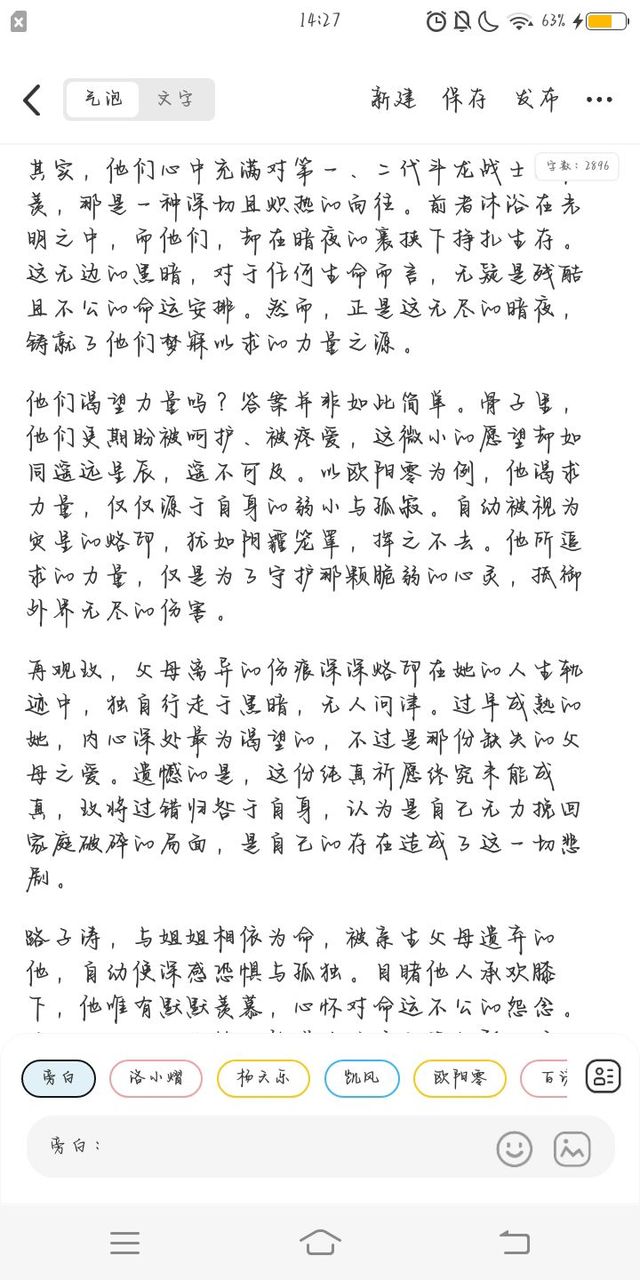 14:27
63%
气泡 文字 新建 保存 发布
字数：2896
其实，他们心中充满对第一、二代斗龙战士
羡，那是一种深切且炽热的向往。前者沐浴在光
明之中，而他们，却在暗夜的裹挟下挣扎生存。
这无边的黑暗，对于任何生命而言，无疑是残酷
且不公的命运安排。然而，正是这无尽的暗夜，
铸就了他们梦寐以求的力量之源。
他们渴望力量吗？答案并非如此简单。骨子里，
他们更期盼被呵护、被疼爱，这微小的愿望却如
同遥远星辰，遥不可及。以欧阳零为例，他渴求
力量，仅仅源于自身的弱小与孤寂。自幼被视为
灾星的烙印，犹如阴霾笼罩，挥之不去。他所追
求的力量，仅是为了守护那颗脆弱的心灵，抵御
外界无尽的伤害。
再观玫，父母离异的伤痕深深烙印在她的人生轨
迹中，独自行走于黑暗，无人问津。过早成熟的
她，内心深处最为渴望的，不过是那份缺失的父
母之爱。遗憾的是，这份纯真祈愿终究未能成
真，玫将过错归咎于自身，认为是自己无力挽回
家庭破碎的局面，是自己的存在造成了这一切悲
剧。
路子涛，与姐姐相依为命，被亲生父母遗弃的
他，自幼便深感恐惧与孤独。目睹他人承欢膝
下，他唯有默默羡慕，心怀对命运不公的怨念。
旁白 洛小熠 杨天乐 凯风 欧阳零 百诺
旁白：